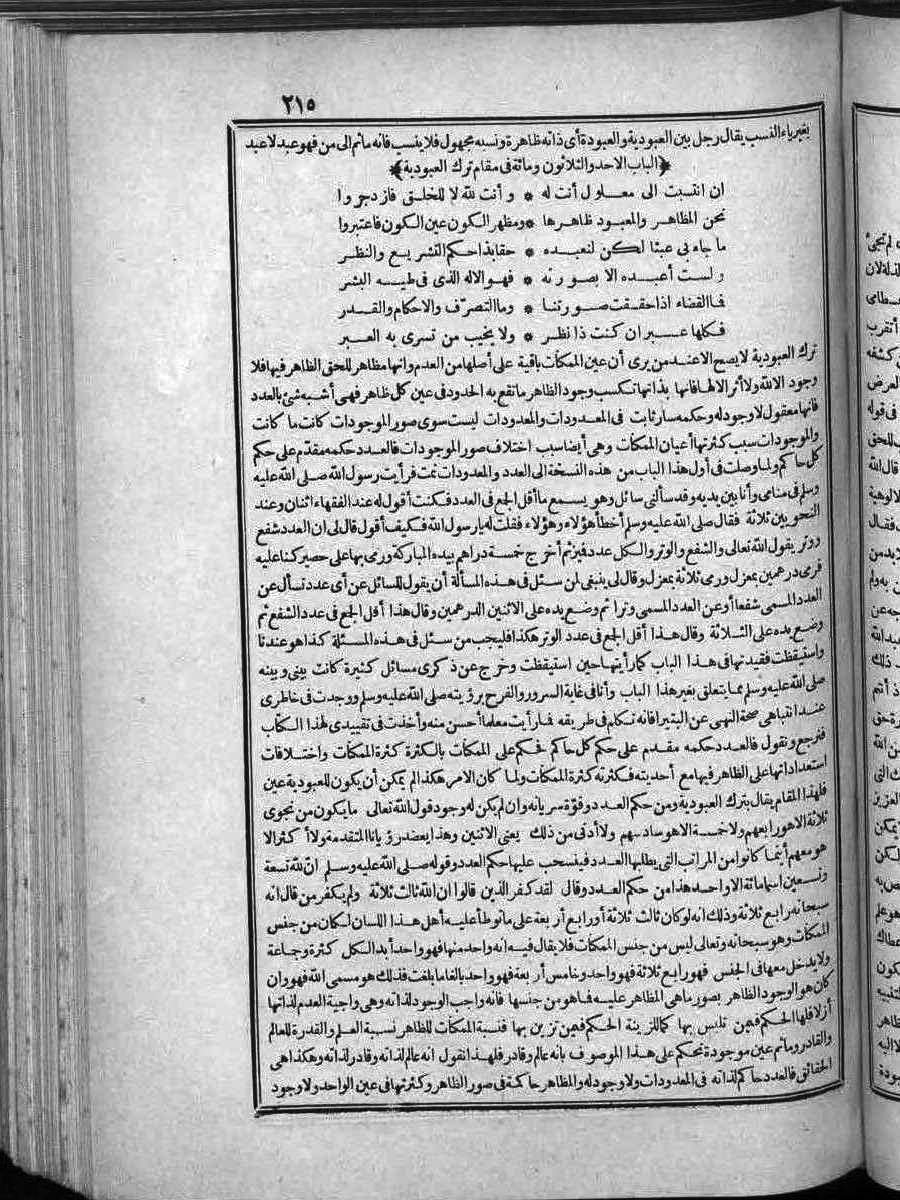 ٢١٥
بغير ياء النسب يقال رجل بين العبودية والعبودة أى ذاته ظاهرة ونسبه مجهول فلا ينسب فانه ما ثم الى من فهو عبد لا عبد
﴿الباب الاحد والثلاثون ومائة فى مقام ترك العبودية﴾
ان انتسبت الى معلول أنت له * وأنت لله لا للخلق فازدجروا
نحن المظاهر والمعبود ظاهرها * ومظهر الكون عين الكون فاعتبروا
ما جاء بى عبثا لكن لنعبده * حقا بذا حكم التشريع والنظر
ولست أعبده الا بصورته * فهو الاله الذى فى طيه البشر
فما القضاء اذا حققت صورتنا * وما التصرّف والاحكام والقدر
فكلها عبر ان كنت ذا نظر * ولا يخيب من تسرى به العبر
ترك العبودية لا يصح الا عند من يرى أن عين الممكنات باقية على أصلها من العدم وانها مظاهر للحق الظاهر فيها فلا
وجود الا لله ولا أثر الا لها فانها بذاتها تكسب وجود الظاهر ما تقع به الحدود فى عين كل ظاهر فهى أشبه شئ بالعدد
فانها معقول لا وجود له وحكمه سار ثابت فى المعدودات والمعدودات ليست سوى صور الموجودات كانت ما كانت
والموجودات سبب كثرتها أعيان الممكنات وهى أيضا سبب اختلاف صور الموجودات فالعدد حكمه مقدّم على حكم
كل حاكم ولما وصلت فى أول هذا الباب من هذه النسخة الى العدد والمعدودات نمت فرأيت رسول الله صلى الله عليه
وسلم فى منامى وأنا بين يديه وقد سألنى سائل وهو يسمع ما أقل الجمع فى العدد فكنت أقول له عند الفقهاء اثنان وعند
النحويين ثلاثة فقال صلى الله عليه وسلم أخطأ هؤلاء وهؤلاء فقلت له يا رسول الله فكيف أقول قال لى ان العدد شفع
ووتر يقول الله تعالى والشفع والوتر والكل عدد فميز ثم أخرج خمسة دراهم بيده المباركة ورمى بها على حصير كنا عليه
فرمى درهمين بمعزل ورمى ثلاثة بمعزل وقال لى ينبغى لمن سئل فى هذه المسألة أن يقول للسائل عن أى عدد تسأل عن
العدد المسمى شفعا أو عن العدد المسمى وترا ثم وضع يده على الاثنين الدرهمين وقال هذا أقل الجمع فى عدد الشفع ثم
وضع يده على الثلاثة وقال هذا أقل الجمع فى عدد الوتر هكذا فليجب من سئل فى هذه المسئلة كذا هو عندنا
واستيقظت فقيدتها فى هذا الباب كما رأيتها حين استيقظت وخرج عن ذكرى مسائل كثيرة كانت بينى وبينه
صلى الله عليه وسلم مما يتعلق بغير هذا الباب وأنا فى غاية السرور والفرح برؤيته صلى الله عليه وسلم ووجدت فى خاطرى
عند انتباهى صحة النهى عن البتيراء فانه تكلم فى طريقه فما رأيت معلما أحسن منه وأخذت فى تقييدى لهذا الكتاب
فنرجع ونقول فالعدد حكمه مقدم على حكم كل حاكم فحكم على الممكنات بالكثرة كثرة الممكنات واختلافات
استعداداتها على الظاهر فيها مع أحديته فكثرته كثرة الممكنات ولما كان الامر هكذا لم يمكن أن يكون للعبودية عين
فلهذا المقام يقال بترك العبودية ومن حكم العدد وقوّة سريانه وان لم يكن له وجود قول الله تعالى ما يكون من نجوى
ثلاثة الا هو رابعهم ولا خمسة الا هو سادسهم ولا أدنى من ذلك يعنى الاثنين وهذا يعضد رؤيانا المتقدمة ولا أكثر الا
هو معهم أينما كانوا من المراتب التى يطلبها العدد فينسحب عليها حكم العدد وقوله صلى الله عليه وسلم ان لله تسعة
وتسعين اسما مائة الا واحد هذا من حكم العدد وقال لقد كفر الذين قالوا ان الله ثالث ثلاثة ولم يكفر من قال انه
سبحانه رابع ثلاثة وذلك انه لو كان ثالث ثلاثة أو رابع أربعة على ما توطأ عليه أهل هذا اللسان لكان من جنس
الممكنات وهو سبحانه وتعالى ليس من جنس الممكنات فلا يقال فيه انه واحد منها فهو واحد أبدا لكل كثرة وجماعة
ولا يدخل معها فى الجنس فهو رابع ثلاثة فهو واحد وخامس أربعة فهو واحد بالغا ما بلغت فذلك هو مسمى الله فهو وان
كان هو الوجود الظاهر بصور ما هى المظاهر عليه فما هو من جنسها فانه واجب الوجود لذاته وهى واجبة العدم لذاتها
أزلا فلها الحكم فيمن تلبس بها كما للزينة الحكم فيمن تزين بها فنسبة الممكنات للظاهر نسبة العلم والقدرة للعالم
والقادر وما ثم عين موجودة تحكم على هذا الموصوف بانه عالم وقادر فلهذا نقول انه عالم لذاته وقادر لذاته وهكذا هى
الحقائق فالعدد حاكم لذاته فى المعدودات ولا وجود له والمظاهر حاكمة فى صور الظاهر وكثرتها فى عين الواحد ولا وجود